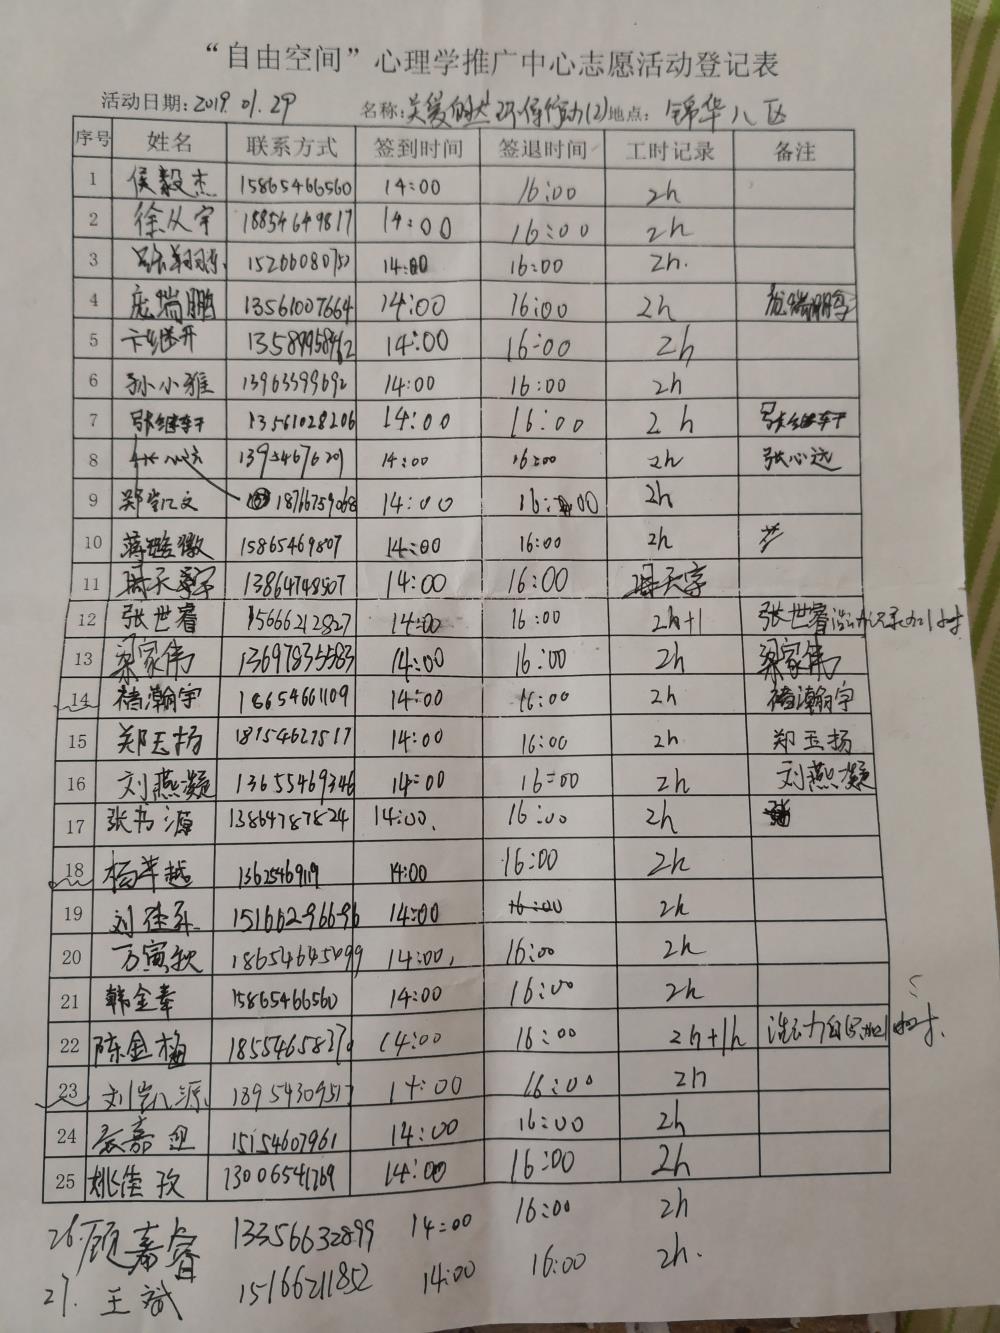 “自由空间”心理学推广中心志愿活动登记表
活动日期：2019.01.29 名称：关爱自然环保行动(2) 地点：锦华八区
序号 姓名 联系方式 签到时间 签退时间 工时记录 备注
1 侯毅杰 15865466560 14:00 16:00 2h
2 徐从宇 18854649817 14:00 16:00 2h
3 14:00 16:00 2h.
4 庞瑞鹏 13561007664 14:00 16:00 2h 庞瑞鹏
5 卞继开 14:00 16:00 2h
6 孙小雅 13963599692 14:00 16:00 2h
7 13561028206 14:00 16:00 2h
8 14:00 16:00 2h 张心远
9 郑凯文 18766759068 14:00 16:00 2h
10 蒋皓徽 15865469807 14:00 16:00 2h
11 13864748507 14:00 16:00
12 张世睿 15666212827 14:00 16:00 2h+1 张世睿活动记录加1小时
13 梁家伟 13697835583 14:00 16:00 2h 梁家伟
14 禚瀚宇 18654661109 14:00 16:00 2h 禚瀚宇
15 郑玉扬 18754627517 14:00 16:00 2h 郑玉扬
16 刘燕凝 13655469346 14:00 16:00 2h 刘燕凝
17 张书源 13864787824 14:00. 16:00 2h
18 杨芊越 1362546919 14:00 16:00 2h
19 刘佳乐 15166296696 14:00 16:00 2h
20 万寅秋 18654645099 14:00, 16:00 2h
21 韩金奉 15865466560 14:00 16:00 2h
22 陈金梅 14:00 16:00 2h+1h
23 刘凯源 13954309517 14:00 16:00 2h
24 15154607961 14:00 16:00 2h
25 姚佳孜 13006541769 14:00 16:00 2h
26. 顾嘉睿 13356632899 14:00 16:00 2h
27. 王斌 15166211852 14:00 16:00 2h.